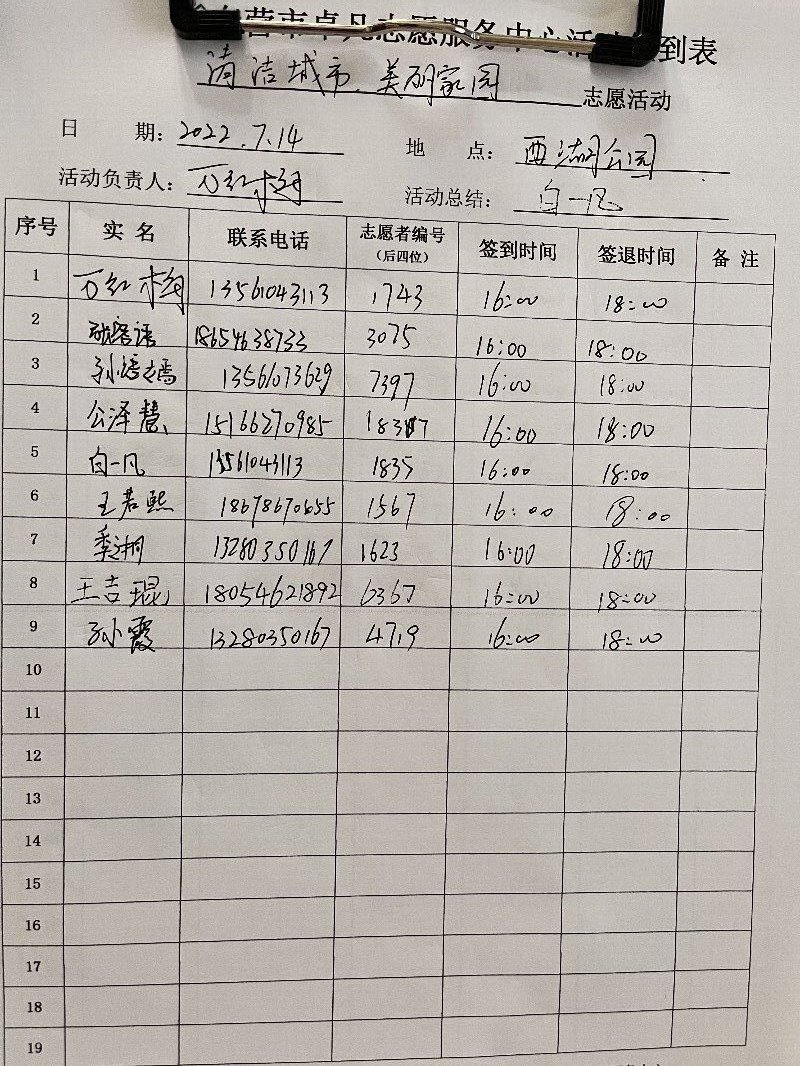 营市卓凡志愿服务中心活动签到表
清洁城市、美丽家园 志愿活动
日 期: 2022.7.14 地 点: 西湖公园
活动负责人: 万红梅 活动总结: 白一凡
序号 实 名 联系电话 志愿者编号 (后四位) 签到时间 签退时间 备 注
1 万红梅 13561043113 1743 16:00 18:00
2 18654638733 3075 16:00 18:00
3 13561073629 7397 16:00 18:00
4 公泽慧 15166270985 16:00 18:00
5 白一凡 13561043113 1835 16:00 18:00
6 王若熙 18678670655 1567 16:00 18:00
7 13280350167 1623 16:00 18:00
8 王吉琨 18054621892 6367 16:00 18:00
9 孙霞 13280350167 4719 16:00 18:00
10
11
12
13
14
15
16
17
18
19